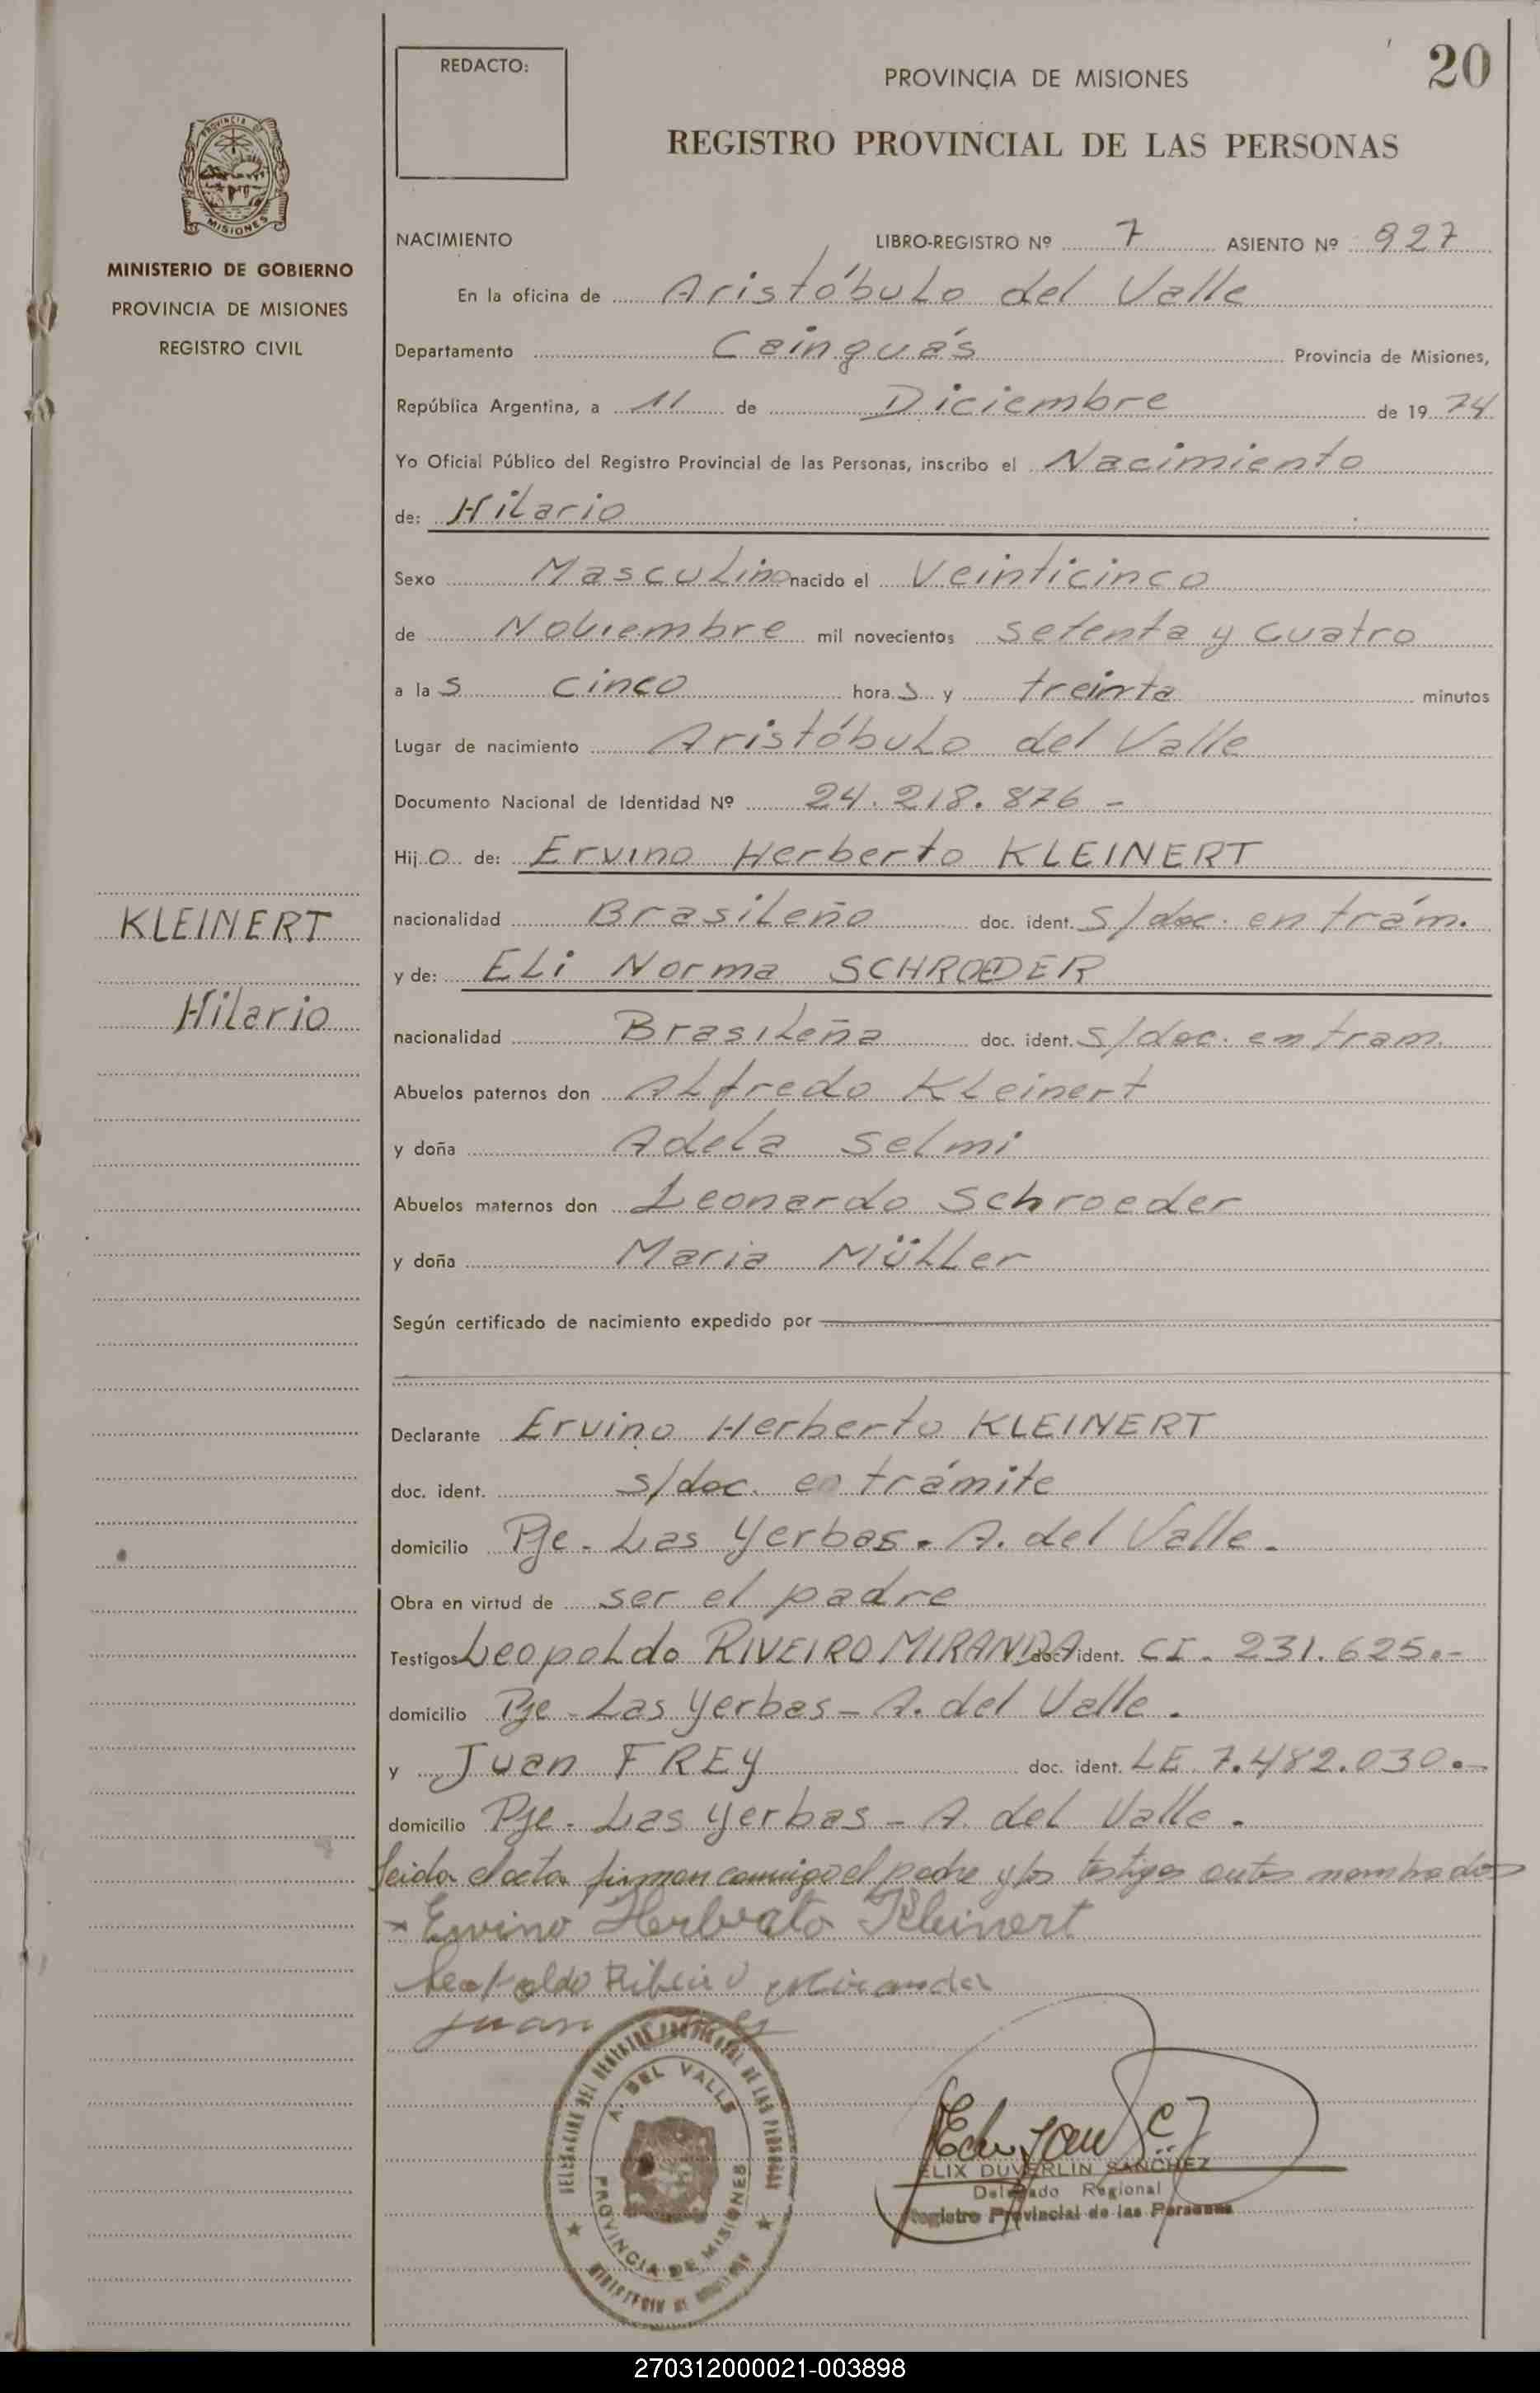 REDACTO:
PROVINCIA DE MISIONES
20
REGISTRO PROVINCIAL DE LAS PERSONAS
PROVINCIA DE
MISIONES
MINISTERIO DE GOBIERNO
PROVINCIA DE MISIONES
REGISTRO CIVIL
NACIMIENTO LIBRO-REGISTRO Nº 7 ASIENTO Nº 927
En la oficina de Aristóbulo del Valle
Departamento Cainguás Provincia de Misiones,
República Argentina, a 11 de Diciembre de 19 74
Yo Oficial Público del Registro Provincial de las Personas, inscribo el Nacimiento
de: Hilario
Sexo Masculino nacido el Veinticinco
de Noviembre mil novecientos setenta y cuatro
a la s cinco hora s y treinta minutos
Lugar de nacimiento Aristóbulo del Valle
Documento Nacional de Identidad Nº 24.218.876 -
Hij o de: Ervino Herberto KLEINERT
nacionalidad Brasileño doc. ident. s/doc. en trám.
y de: Eli Norma SCHROEDER
nacionalidad Brasileña doc. ident. s/doc. en tram.
Abuelos paternos don Alfredo Kleinert
y doña Adela Selmi
Abuelos maternos don Leonardo Schroeder
y doña Maria Müller
Según certificado de nacimiento expedido por
KLEINERT
Hilario
Declarante Ervino Herberto KLEINERT
doc. ident. s/doc. en trámite
domicilio Pje. Las Yerbas. A. del Valle.
Obra en virtud de ser el padre
Testigos Leopoldo RIVEIRO MIRANDA doc. ident. CI. 231.625.-
domicilio Pje. Las Yerbas - A. del Valle.
y Juan FREY doc. ident. LE 7.482.030.-
domicilio Pje. Las Yerbas - A. del Valle.
Leida el acta firman conmigo el padre y los testigos antes nombrados
Ervino Herberto Kleinert
Leopoldo Ribeiro Miranda
Juan
A. DEL VALLE
PROVINCIA DE MISIONES
ELIX DUVERLIN SANCHEZ
Delegado Regional
Registro Provincial de las Personas
270312000021-003898